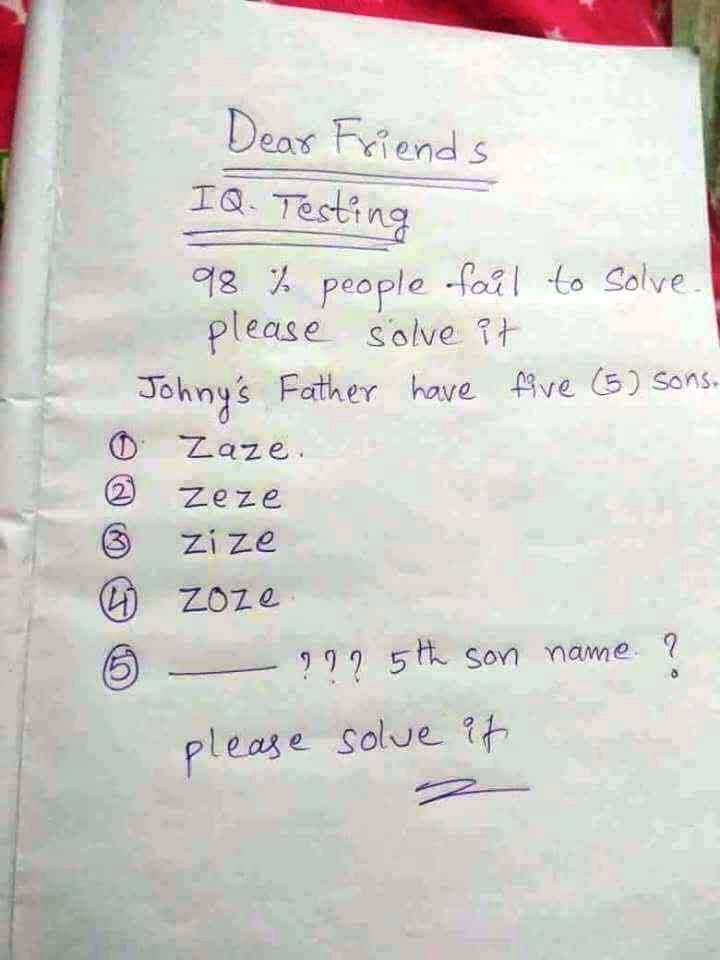 Dear Friends
IQ. Testing
98 % people fail to Solve.
please solve it
Johny's Father have five (5) Sons.
① Zaze.
② Zeze
③ Zize
④ ZOZe
⑤ ____ ??? 5th son name. ?
please solve it